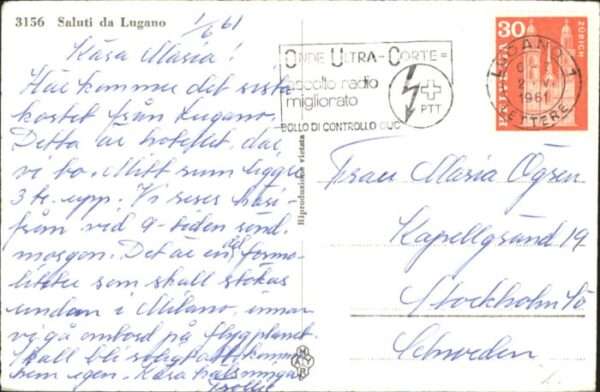 3156 Saluti da Lugano
1/6 61
Kära Maria!
Här kommer det sista
kortet från Lugano.
Detta är hotellet, där
vi bo. Mitt rum ligger
3 tr. upp. Vi reser häri-
från vid 9-tiden sönd.
morgon. Det är en del forma-
liteter som skall stökas
undan i Milano, innan
vi gå ombord på flygplanet.
Skall bli roligt att komma
hem igen. Kära hälsningar
Riproduzione vietata
ONDE ULTRA-CORTE=
ascolto radio
migliorato
PTT
BOLLO DI CONTROLLO
30
HELVETIA
ZÜRICH
LUGANO 1
1961
LETTERE
Frau Maria Ögren
Kapellgränd 19
Stockholm Sö
Schweden